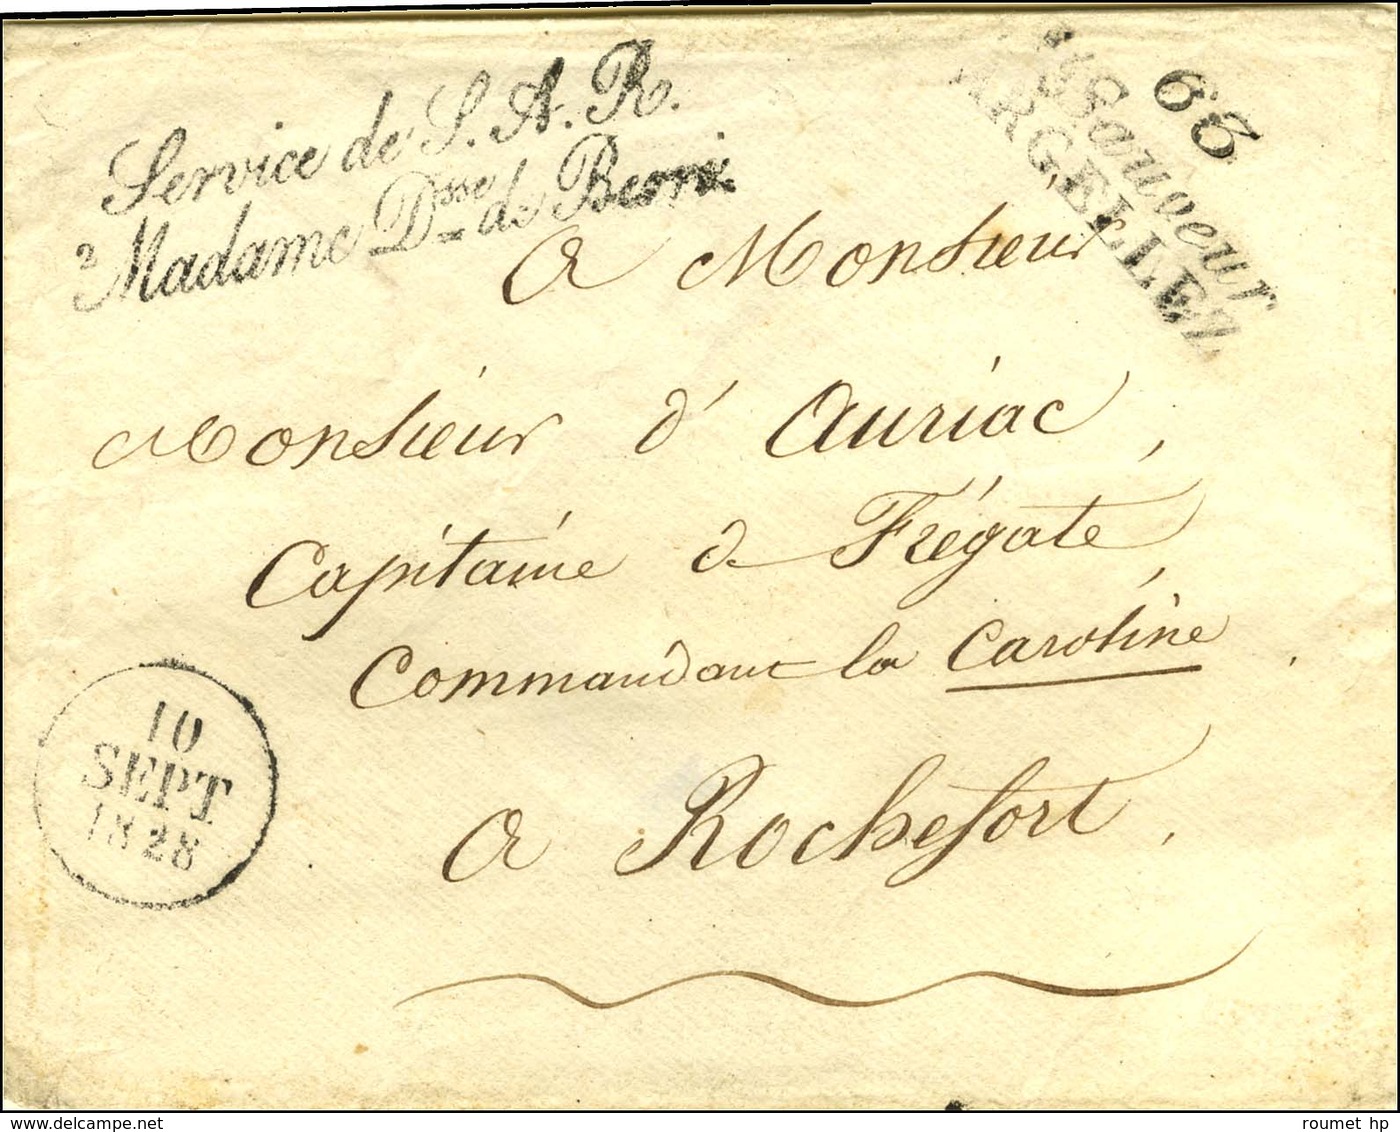 Service de S. A. R.
2 Madame D.sse de Berri.
63
St Sauveur
ARGELLEZ
a Monsieur
Monsieur d'Auriac,
Capitaine de Frégate,
Commandant la Caroline.
a Rochefort.
10
SEPT
1828
roumet hp